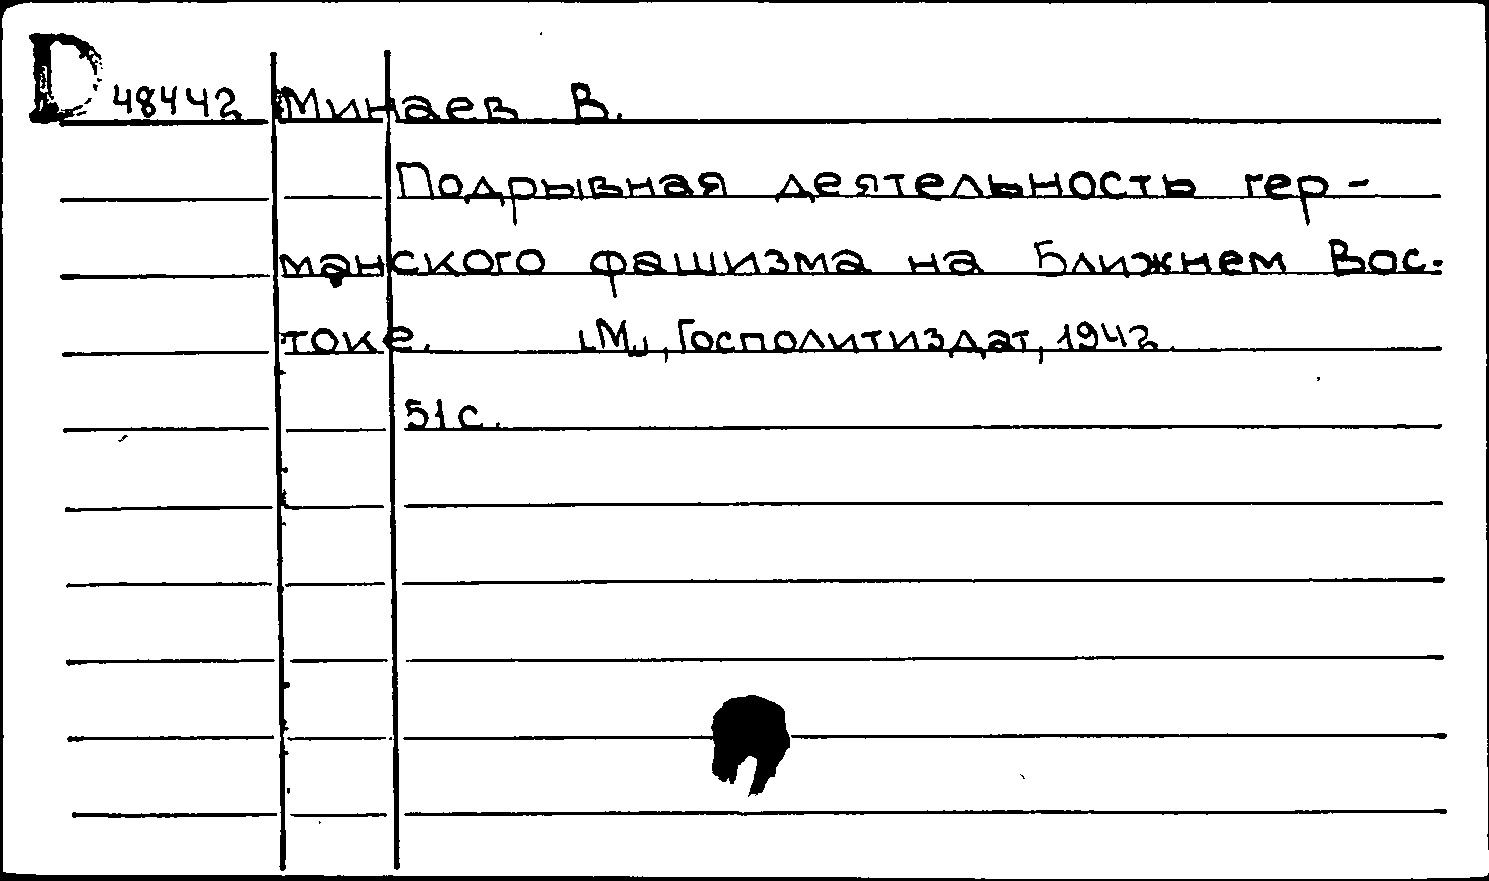 D 48442 Минаев В.
Подрывная деятельность гер-
манского фашизма на Ближнем Вос-
токе. [М.], Госполитиздат, 1942.
51 с.